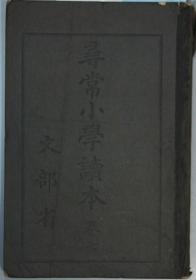 尋常小學讀本卷
文部省